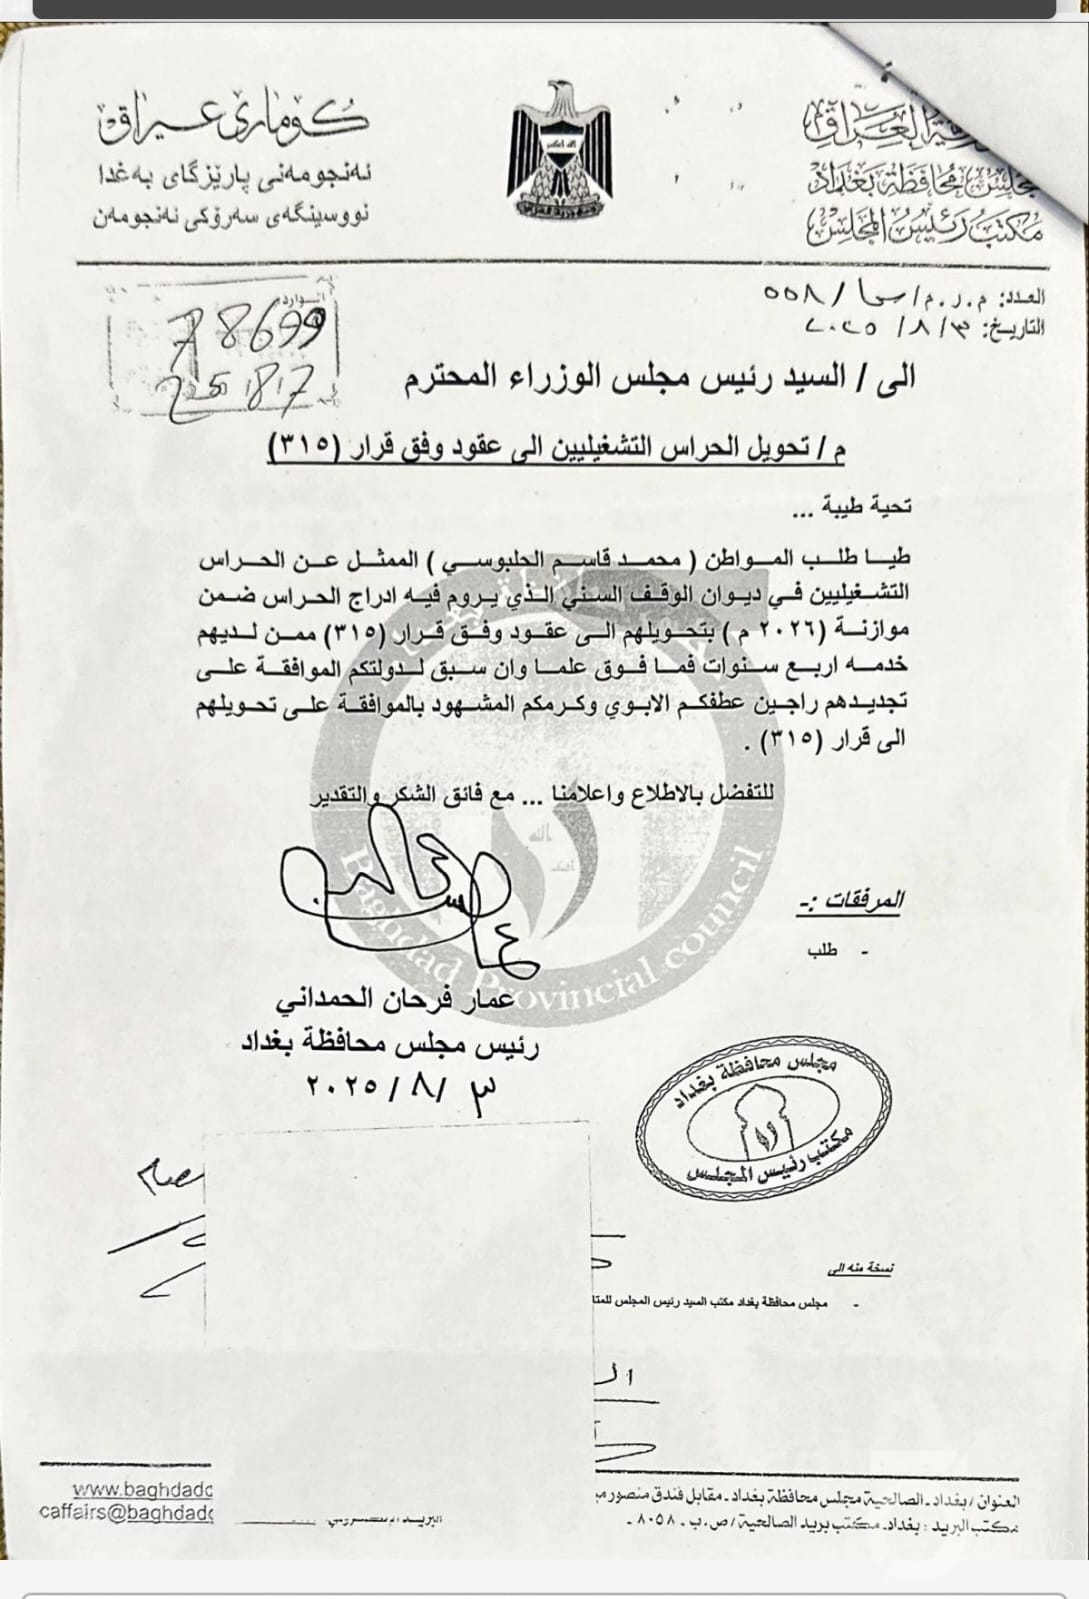 كۆماری عیراق
ئەنجومەنی پارێزگای بەغدا
نووسینگەی سەرۆکی ئەنجومەن
العراق
مجلس محافظة بغداد
مكتب رئيس المجلس
العدد: م.ر.م/ /٥٥٨
التاريخ: ٣/ ٨/ ٢٠٢٥
الوارد
78699
25 8 7
الى / السيد رئيس مجلس الوزراء المحترم
م / تحويل الحراس التشغيليين الى عقود وفق قرار (٣١٥)
تحية طيبة ...
طيا طلب المواطن ( محمد قاسم الحلبوسي ) الممثل عن الحراس
التشغيليين في ديوان الوقف السني الذي يروم فيه ادراج الحراس ضمن
موازنة (٢٠٢٦ م ) بتحويلهم الى عقود وفق قرار (٣١٥) ممن لديهم
خدمه اربع سنوات فما فوق علما وان سبق لدولتكم الموافقة على
تجديدهم راجين عطفكم الابوي وكرمكم المشهود بالموافقة على تحويلهم
الى قرار (٣١٥) .
للتفضل بالاطلاع واعلامنا ... مع فائق الشكر والتقدير
Baghdad Provincial council
المرفقات :-
- طلب
عمار فرحان الحمداني
رئيس مجلس محافظة بغداد
٣ /٨ / ٢٠٢٥
مجلس محافظة بغداد
مكتب رئيس المجلس
نسخة منه الى
- مجلس محافظة بغداد مكتب السيد رئيس المجلس
العنوان / بغداد ـ الصالحية مجلس محافظة بغداد ـ مقابل فندق منصور
مكتب البريد : بغداد ـ مكتب بريد الصالحية / ص.ب ـ ٨٠٥٨ ـ
www.baghdadc
caffairs@baghdadc
NEWS